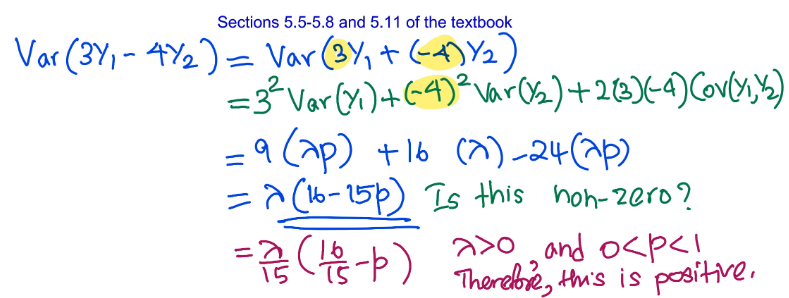 Sections 5.5-5.8 and 5.11 of the textbook
Var(3Y₁ - 4Y₂) = Var(3Y₁ + (-4)Y₂)
= 3² Var(Y₁) + (-4)² Var(Y₂) + 2(3)(-4) Cov(Y₁,Y₂)
= 9 (λp) + 16 (λ) - 24(λp)
= λ(16-15p) Is this non-zero?
= λ/15 (16/15 - p) λ>0, and 0<p<1
Therefore, this is positive.